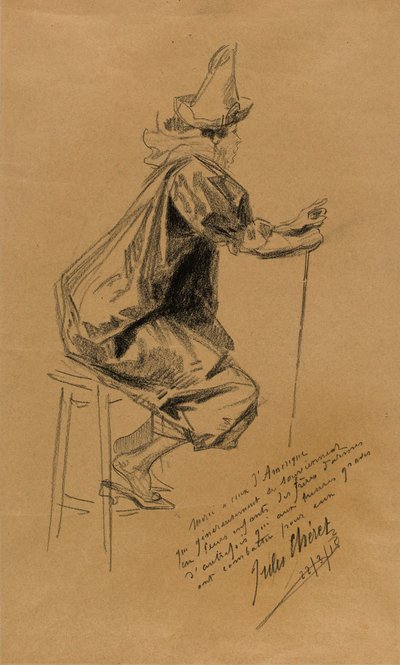 Merci à ceux d'Amérique
qui généreusement se souviennent
en leurs enfants des frères d'armes
d'autrefois qui aux heures graves
ont combattu pour eux
Jules Chéret